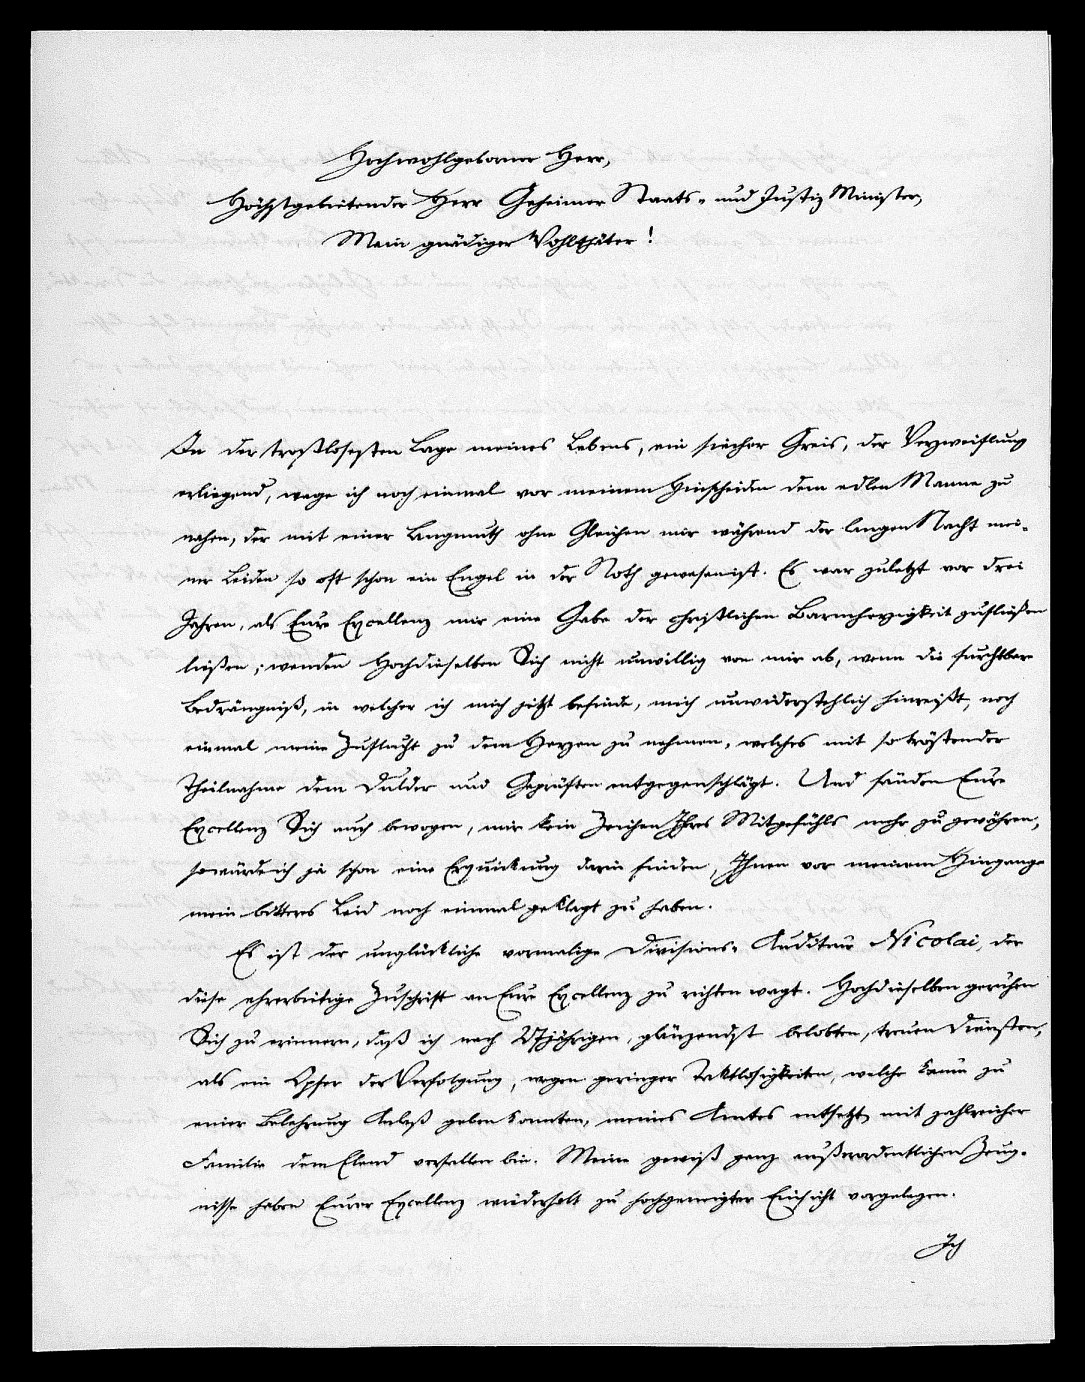 Hochwohlgeborner Herr,
Höchstgebietender Herr Geheimer Staats- und Justiz Minister,
Mein gnädiger Wohlthäter!
In der trostlosesten Lage meines Lebens, ein siecher Greis, der Verzweiflung
erliegend, wage ich noch einmal vor meinem Hinscheiden dem edlen Manne zu
nahen, der mit einer Langmuth ohne Gleichen mir während der langen Nacht mei-
ner Leiden so oft schon ein Engel in der Noth gewesen ist. Es war zuletzt vor drei
Jahren, als Eure Excellenz mir eine Gabe der christlichen Barmherzigkeit zufließen
ließen; wenden Hochdieselben Sich nicht unwillig von mir ab, wenn die furchtbare
Bedrängniß, in welcher ich mich jetzt befinde, mich unwiderstehlich hinreißt, noch
einmal meine Zuflucht zu dem Herzen zu nehmen, welches mit so tröstender
Theilnahme dem Dulder und Geprüften entgegenschlägt. Und fänden Eure
Excellenz Sich auch bewogen, mir kein Zeichen Ihres Mitgefühls mehr zu gewähren,
so würde ich ja schon eine Erquickung darin finden, Ihnen vor meinem Hingange
mein bitteres Leid noch einmal geklagt zu haben.
Es ist der unglückliche vormalige Divisions-Auditeur Nicolai, der
diese ehrerbietige Zuschrift an Eure Excellenz zu richten wagt. Hochdieselben geruhen
Sich zu erinnern, daß ich nach 27jährigen, glänzendst belobten, treuen Diensten,
als ein Opfer der Verfolgung, wegen geringer Taktlosigkeiten, welche kaum zu
einer Belehrung Anlaß geben konnten, meines Amtes entsetzt, mit zahlreicher
Familie dem Elend verfallen bin. Meine gewiß ganz außerordentlichen Zeug-
nisse haben Eurer Excellenz wiederholt zu hochgeneigter Einsicht vorgelegen.
Ich